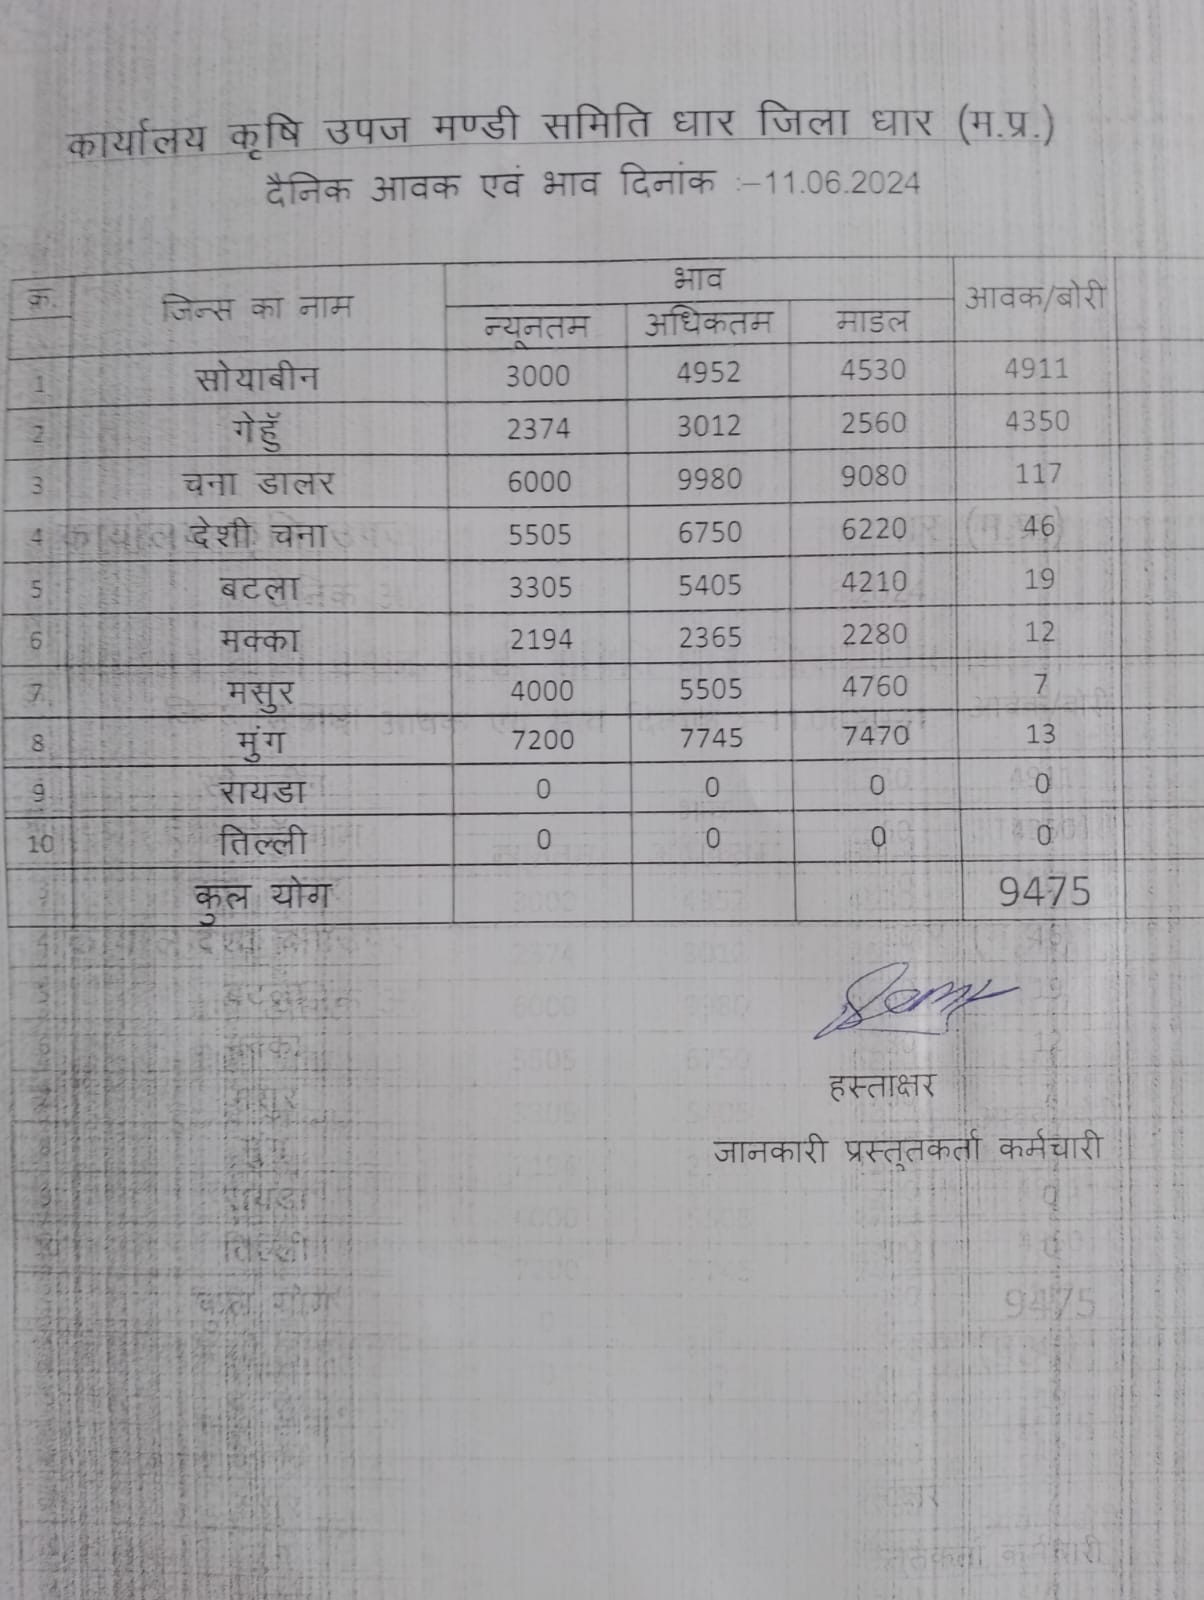 कार्यालय कृषि उपज मण्डी समिति धार जिला धार (म.प्र.)
दैनिक आवक एवं भाव दिनांक :–11.06.2024
क्र. जिन्स का नाम भाव आवक/बोरी
न्यूनतम अधिकतम माडल
1 सोयाबीन 3000 4952 4530 4911
2 गेहूॅ 2374 3012 2560 4350
3 चना डालर 6000 9980 9080 117
4 देशी चना 5505 6750 6220 46
5 बटला 3305 5405 4210 19
6 मक्का 2194 2365 2280 12
7 मसुर 4000 5505 4760 7
8 मुंग 7200 7745 7470 13
9 रायडा 0 0 0 0
10 तिल्ली 0 0 0 0
कुल योग 9475
हस्ताक्षर
जानकारी प्रस्तुतकर्ता कर्मचारी